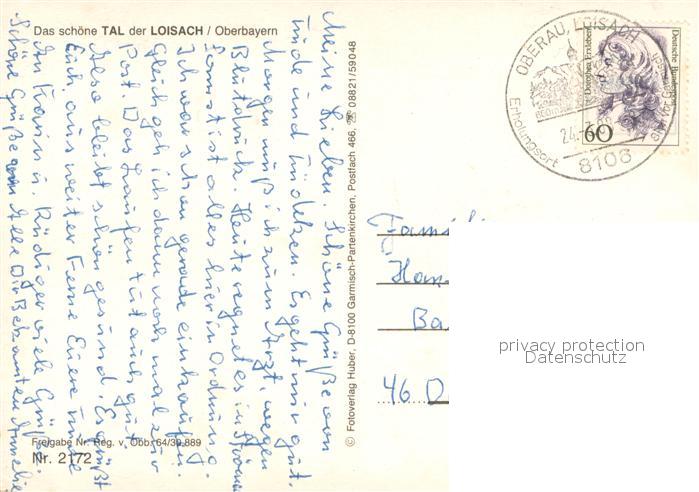 Das schöne TAL der LOISACH / Oberbayern
Meine Lieben. Schöne Grüße von
müde und Mädchen. Es geht mir gut.
Morgen muß ich zum Arzt, wegen
Blutdruck. Heute regnet es in Strömen
Sonst ist alles hier in Ordnung.
Ich war schon gerade einkaufen.
Gleich geh ich dann noch mal zur
Post. Das Laufen tut auch gut.
Also bleibt schön gesund. Es grüßt
Euch, aus weiter Ferne Eure
An Karin u. Rüdiger viele Grüße.
Schöne Grüße an Alle Bekannten
Freigabe Nr. Reg. v. Obb. 64/30 889
Nr. 2172
© Fotoverlag Huber, D-8100 Garmisch-Partenkirchen, Postfach 466, ☏ 08821/59048
OBERAU, LOISACH
Erholungsort
24.
8106
Deutsche Bundespost
Dorothea Erxleben
60
Famil
Han
Ba
46 D
privacy protection
Datenschutz